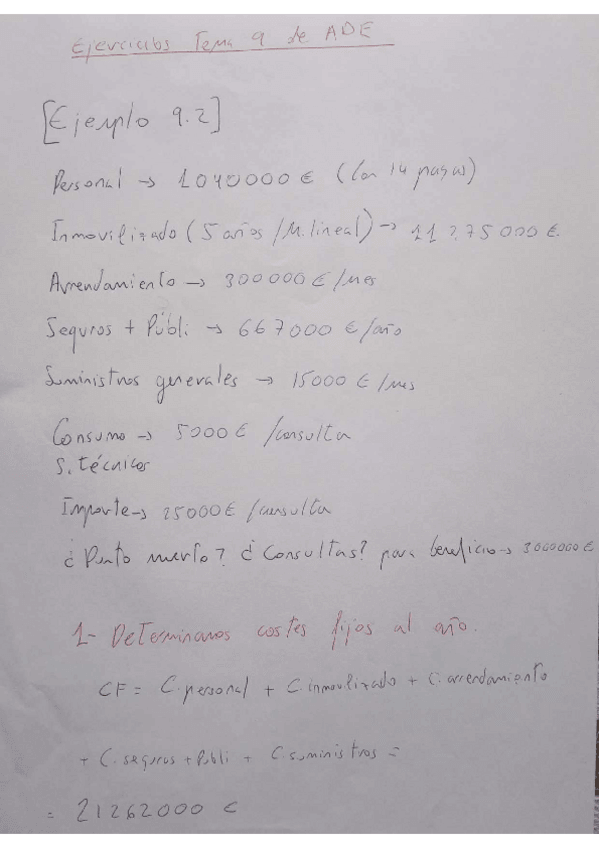 Ejercicios Tema 9 de ADE
[Ejemplo 9.2]
Personal → 1040000 € (Con 14 pagas)
Inmovilizado (5 años / M. lineal) → 11275000 €
Arrendamiento → 300000 € / mes
Seguros + Públi → 667000 € / año
Suministros generales → 15000 € / mes
Consumo → 5000 € / consulta
S. técnicos
Importe → 25000 € / consulta
¿Punto muerto? ¿Consultas? para beneficio → 3000000 €
1- Determinamos costes fijos al año.
CF = C. personal + C. inmovilizado + C. arrendamiento
+ C. seguros + Públi + C. suministros =
= 21262000 €